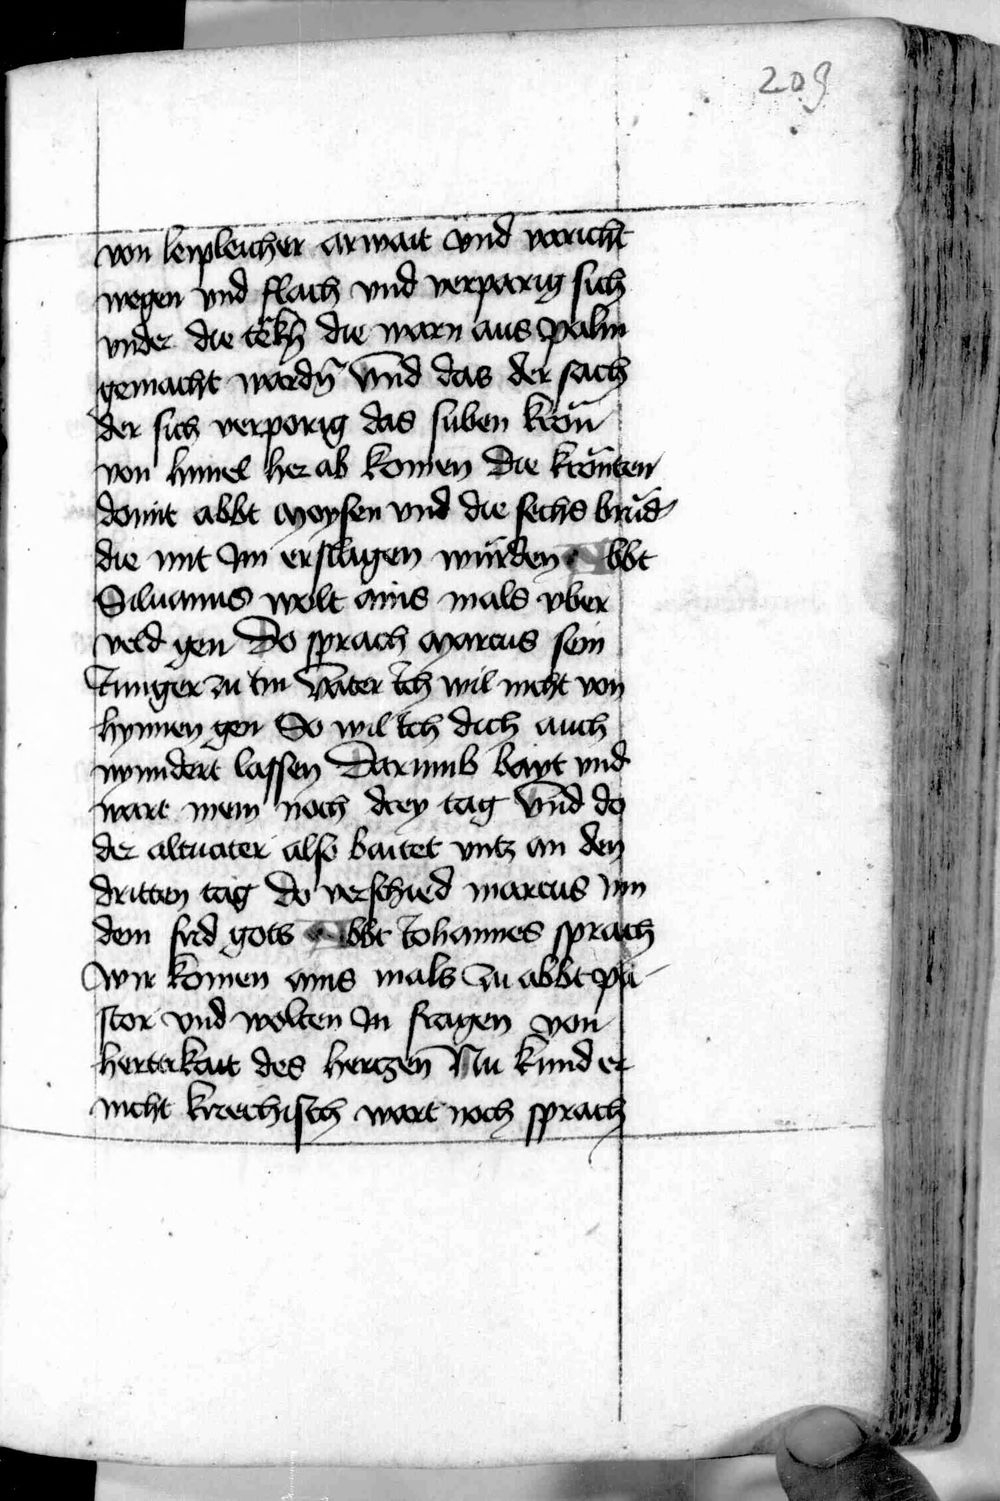 209
von leipleicher arwait vnd voricht
wegen vnd flach vnd verparig sich
vnder die tekñ die warn aus palm
gemacht wordñ Vnd das der sach
der sich verporig das suben kron
von himel her ab komen Die krönten
domit abbt Moysen vnd die sechs brud
die mit Im erslagen wurden Abbt
Siluanus wolt ains mals vber
veld gen Do sprach Marcus sein
Iunger zu im Vater Ich wil nicht von
hynnen gen So wil Ich dich auch
nyndert lassen Darumb bayt vnd
wart mein noch drey tag Vnd do
der altuater also baitet vntz an den
dritten tag do verschied marcus von
dem frid gots Abbt Iohannes sprach
Wir komen ains mals zu abbt pa
stor vnd wolten In fragen von
hertikait des hertzen Nu kund er
nicht kriechisch wort noch sprach